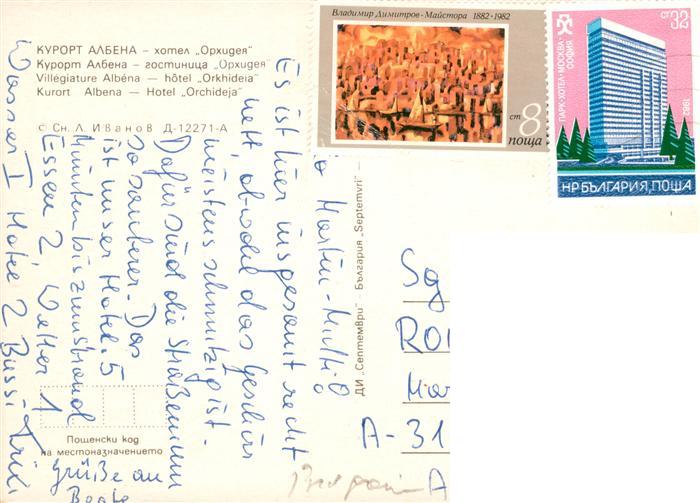 КУРОРТ АЛБЕНА – хотел „Орхидея"
Курорт Албена – гостиница „Орхидея"
Villégiature Albéna – hôtel "Orkhideia"
Kurort Albena – Hotel "Orchideja"
© Сн. Л. Иванов Д-12271-А
Владимир Димитров-Майстора 1882·1982
ст 8
поща
ст 32
ПАРК-ХОТЕЛ-МОСКВА
СОФИЯ
1982
НР БЪЛГАРИЯ, ПОЩА
Martin-Multi
Es ist hier insgesamt recht
nett, obwohl das Geschirr
meistens schmutzig ist.
Dafür sind die Straßen um
so sauberer. Das
ist unser Hotel. 5
Minuten bis zum Strand
Essen 2, Wetter 1
Wasser 1 Hotel 2 Bussi
Grüße an
Beate
ДИ „Септември" – България "Septemvri"
Пощенски код
на местоназначението
A-31
A